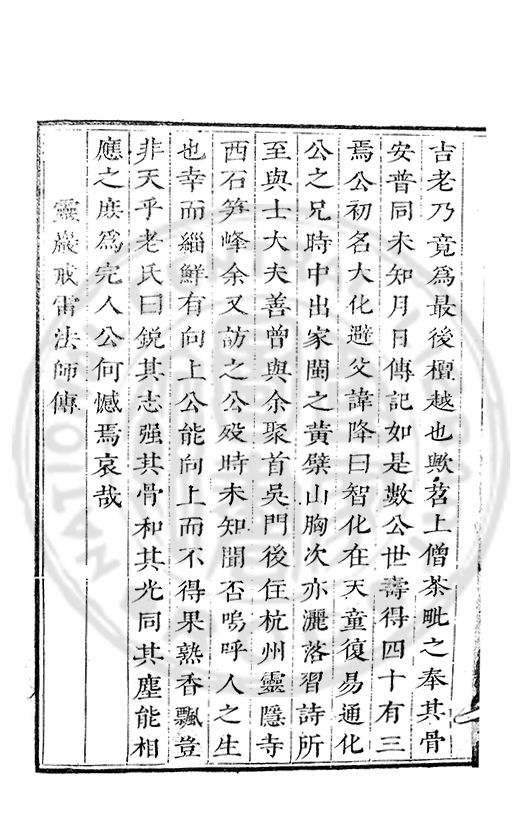 吉老乃竟爲最後檀越也歟苕上僧茶毗之奉其骨
安普同未知月日傳記如是數公世壽得四十有三
焉公初名大化避父諱降曰智化在天童復易通化
公之兄時中出家閩之黃檗山胸次亦灑落習詩所
至與士大夫善曾與余聚首吳門後住杭州靈隱寺
西石笋峰余又訪之公歿時未知聞否嗚呼人之生
也幸而緇鮮有向上公能向上而不得果熟香飄豈
非天乎老氏曰銳其志强其骨和其光同其塵能相
應之庶爲完人公何憾焉哀哉
靈巖戒雷法師傳
NATIONAL